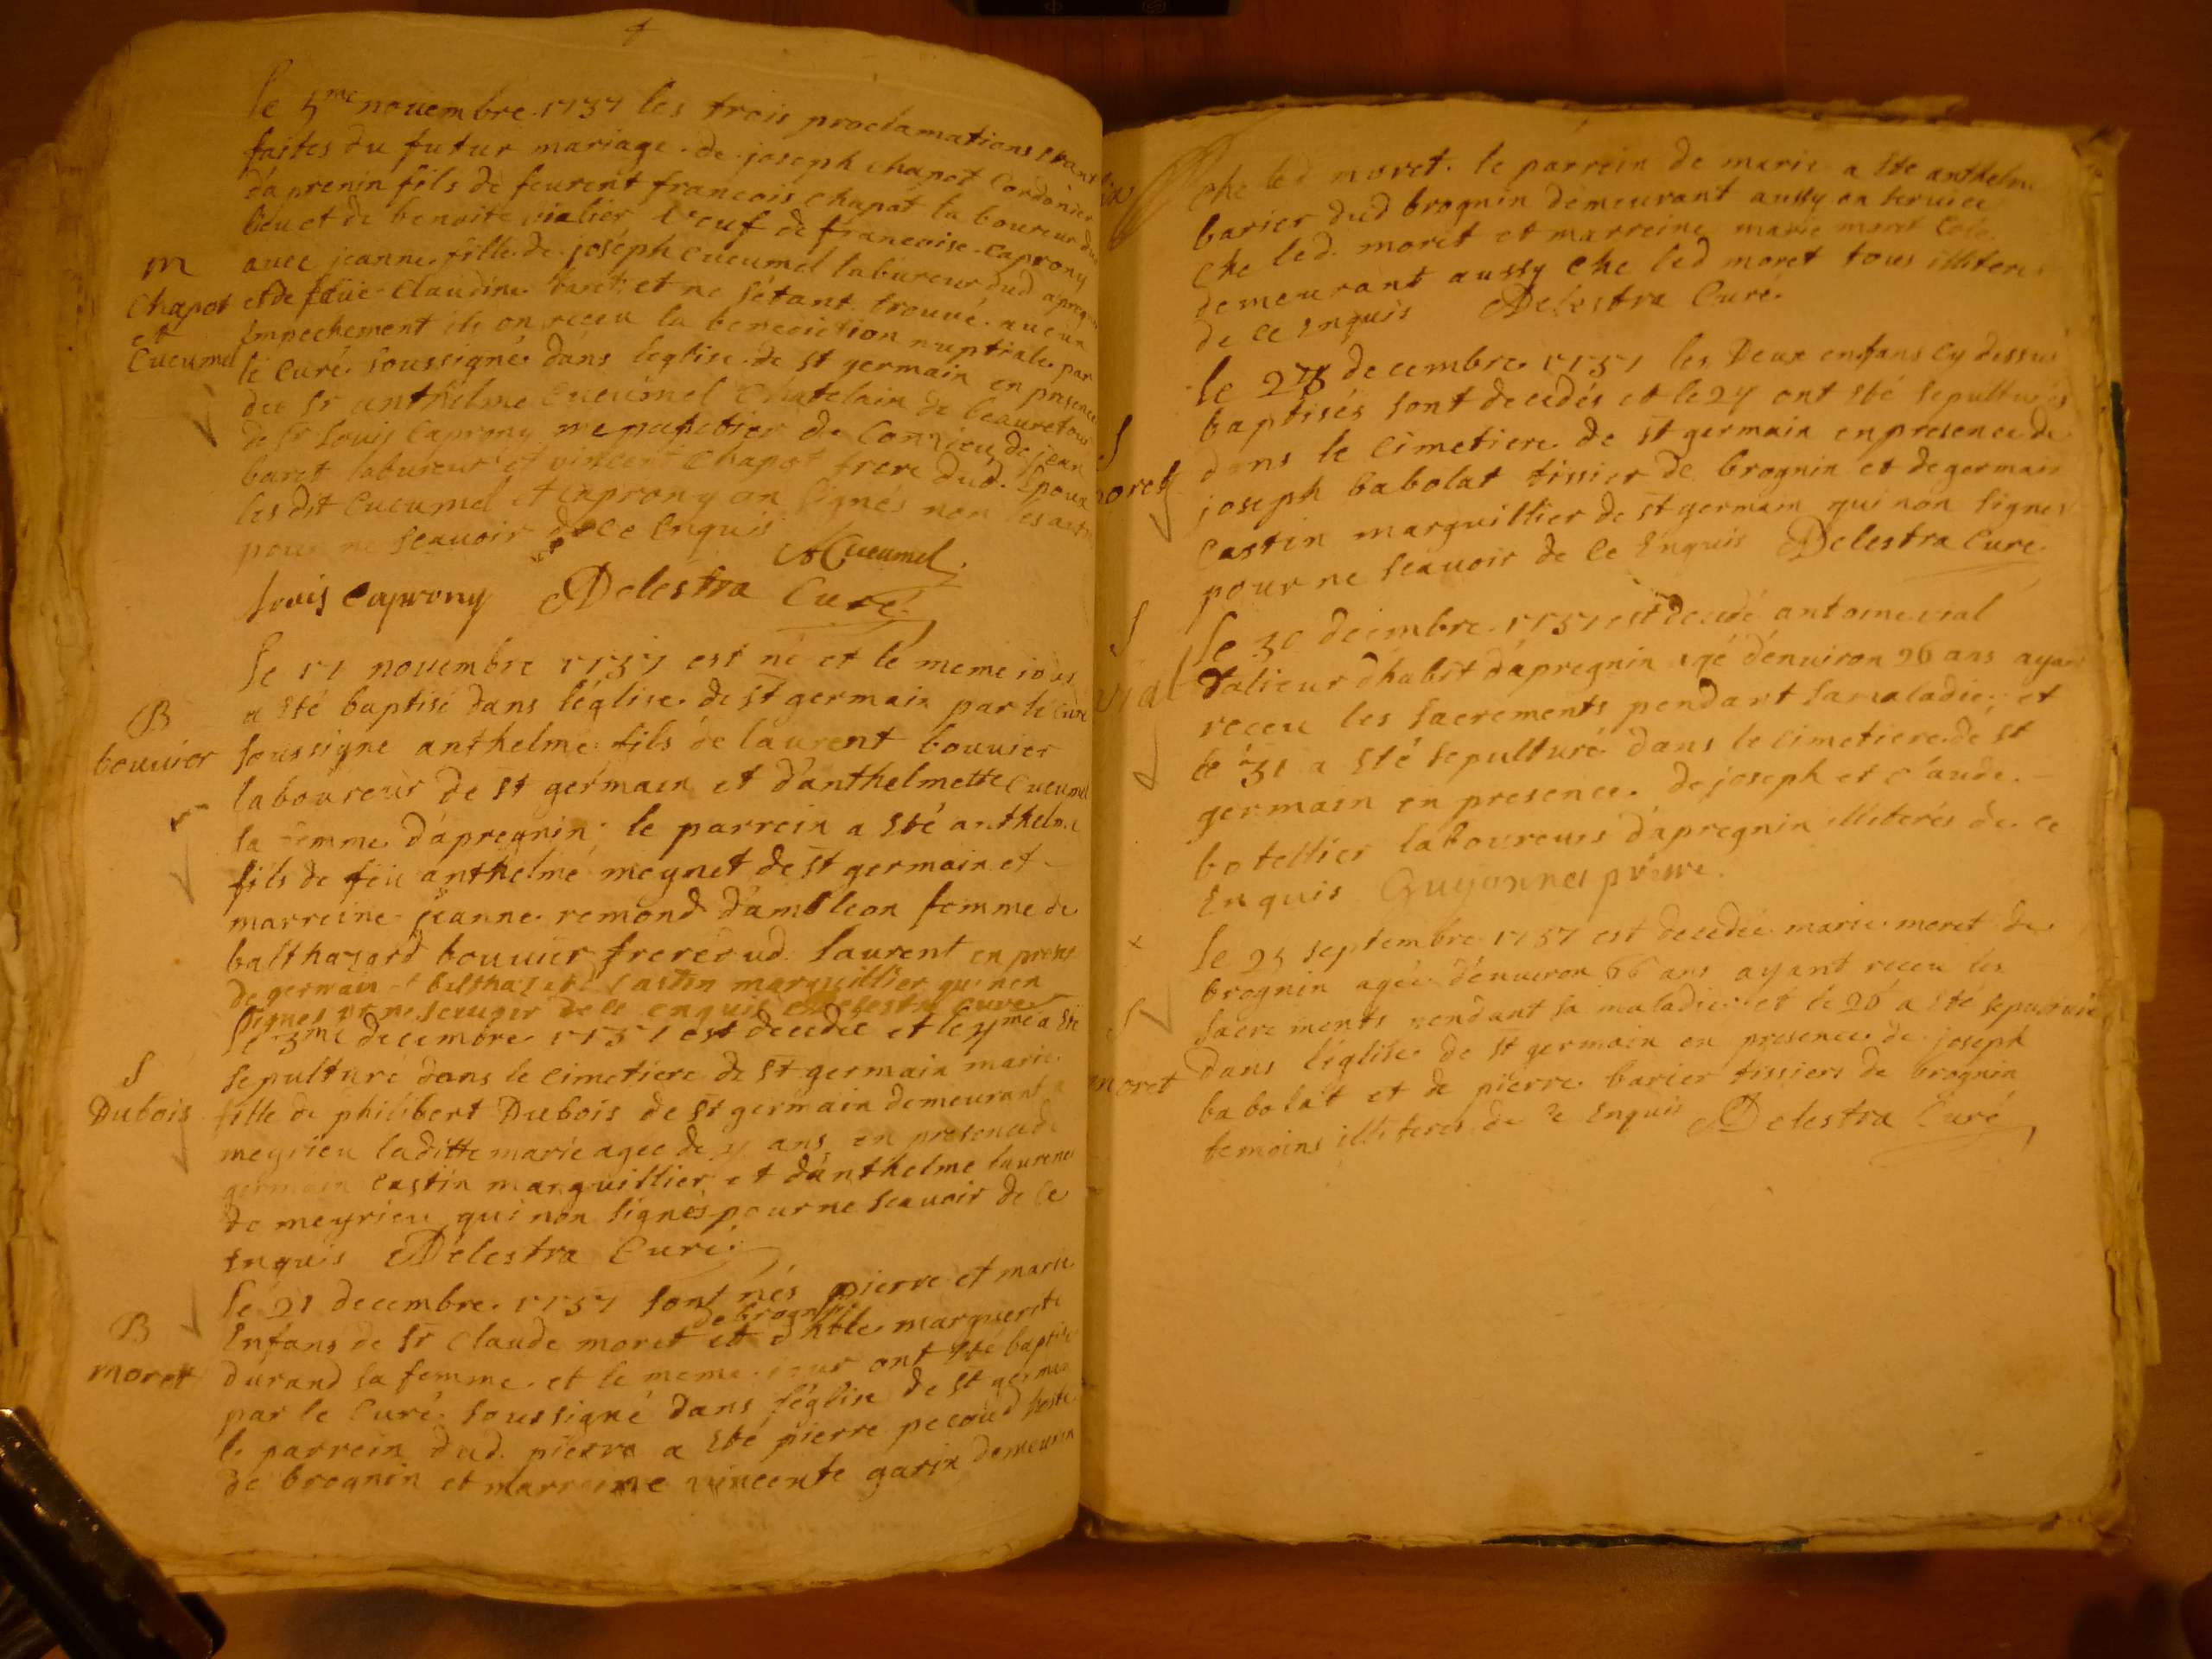 le 5me nouembre 1737 les trois proclamations etant
faites du futur mariage de joseph chapot Cordonier
d'aprenin fils de feurent francois chapot laboureur dud
lieu et de benoite vialier veuf de francoise caprony
M
Chapot
et
Cucumel
auec jeanne fille de joseph cucumel labureur dud apregnin
et de feüe claudine baret et ne sétant trouué aucun
Empechement ils on receu la benediction nuptiale par
le Curé soussigné dans leglise de st germain en presence
de Sr anthelme Cucumel Chatelain de beauretour
de Sr Louis Caprony me papetier de Conzieu de jean
baret labureur et vincent Chapot frere dud. Epoux
les dit Cucumel et Caprony on signés non les autres
pour ne sçauoir de ce Enquis
ACucumel
Louis Caprony Delestra Curé
le 11 nouembre 1737 est né et le meme jour
B
bouuier
a eté baptisé dans l'église de st germain par le curé
soussigne anthelme fils de laurent bouuier
laboureur de st germain et d'anthelmette Cucumel
sa femme d'apregnin; le parrein a eté anthelme
fils de feu anthelme meynet de st germain et
marreine jeanne remond d'ambleon femme de
balthazard bouuier frere dud. laurent en presence
de germain et balthazard Castin marguillier qui non
signes pr ne scauoir de ce enquis Delestra Curé
le 3me decembre 1737 est decedée et le 4me a eté
S
Dubois
sepulturé dans le cimetiere de st germain marie
fille de philibert Dubois de st germain demeurant a
meyrieu laditte marie agee de 4 ans en presence de
germain castin marguillier et d'anthelme laurenet
de meyrieu qui non signés pour ne scauoir de ce
enquis Delestra Curé
le 21 decembre 1737 sont nés pierre et marie
B
moret
de brognin
Enfans de Sr Claude moret et d'hble marguerite
durand sa femme et le meme jour ont eté baptisé
par le Curé soussigné dans l'église de st germain
le parrein dud. pierre a eté pierre pecoud hoste
de brognin et marreine vincente garin demeurant
che led moret. le parrein de marie a ete anthelme
barier dud brognin demeurant aussy en seruice
che led. moret et marreine marie moret
demeurant aussy che led moret tous illiteres
de ce enquis Delestra Curé
S
moret
le 23 decembre 1737 les Deux enfans cy dessus
baptisés sont decedés et le 24 ont eté sepulturés
dans le cimetiere de st germain en presence de
joseph babolat tissier de brognin et de germain
castin marguillier de st germain qui non signer
pour ne scauoir de ce Enquis Delestra Curé
S
vial
le 30 decembre 1737 est decedé antoine vial
talieur dhabit d'apregnin agé d'enuiron 26 ans ayant
receu les sacrements pendant sa maladie, et
le 31 a eté sepulturé dans le cimetiere de st
germain en presence de joseph et claude
botellier laboureurs d'apregnin illiterés de ce
Enquis Guyonnet prêtre
S
moret
le 25 septembre 1737 est decedée marie moret de
brognin ageé d'enuiron 66 ans ayant receu les
sacrements pendant sa maladie et le 26 a eté sepulturée
dans l'église de st germain en presence de joseph
babolat et de pierre barier tissiers de brognin
temoins illiteres de ce Enquis Delestra Curé